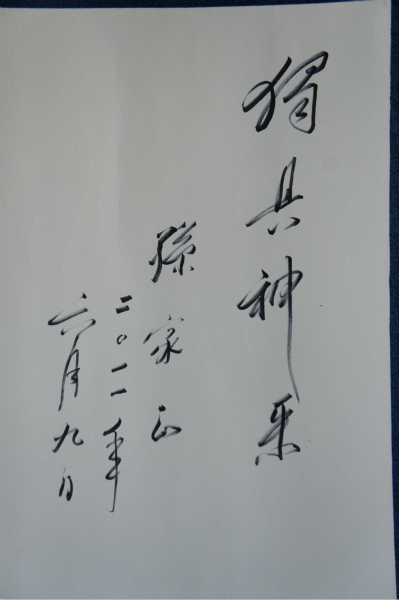 獨具神采
孫家正
二〇一一年
六月九日